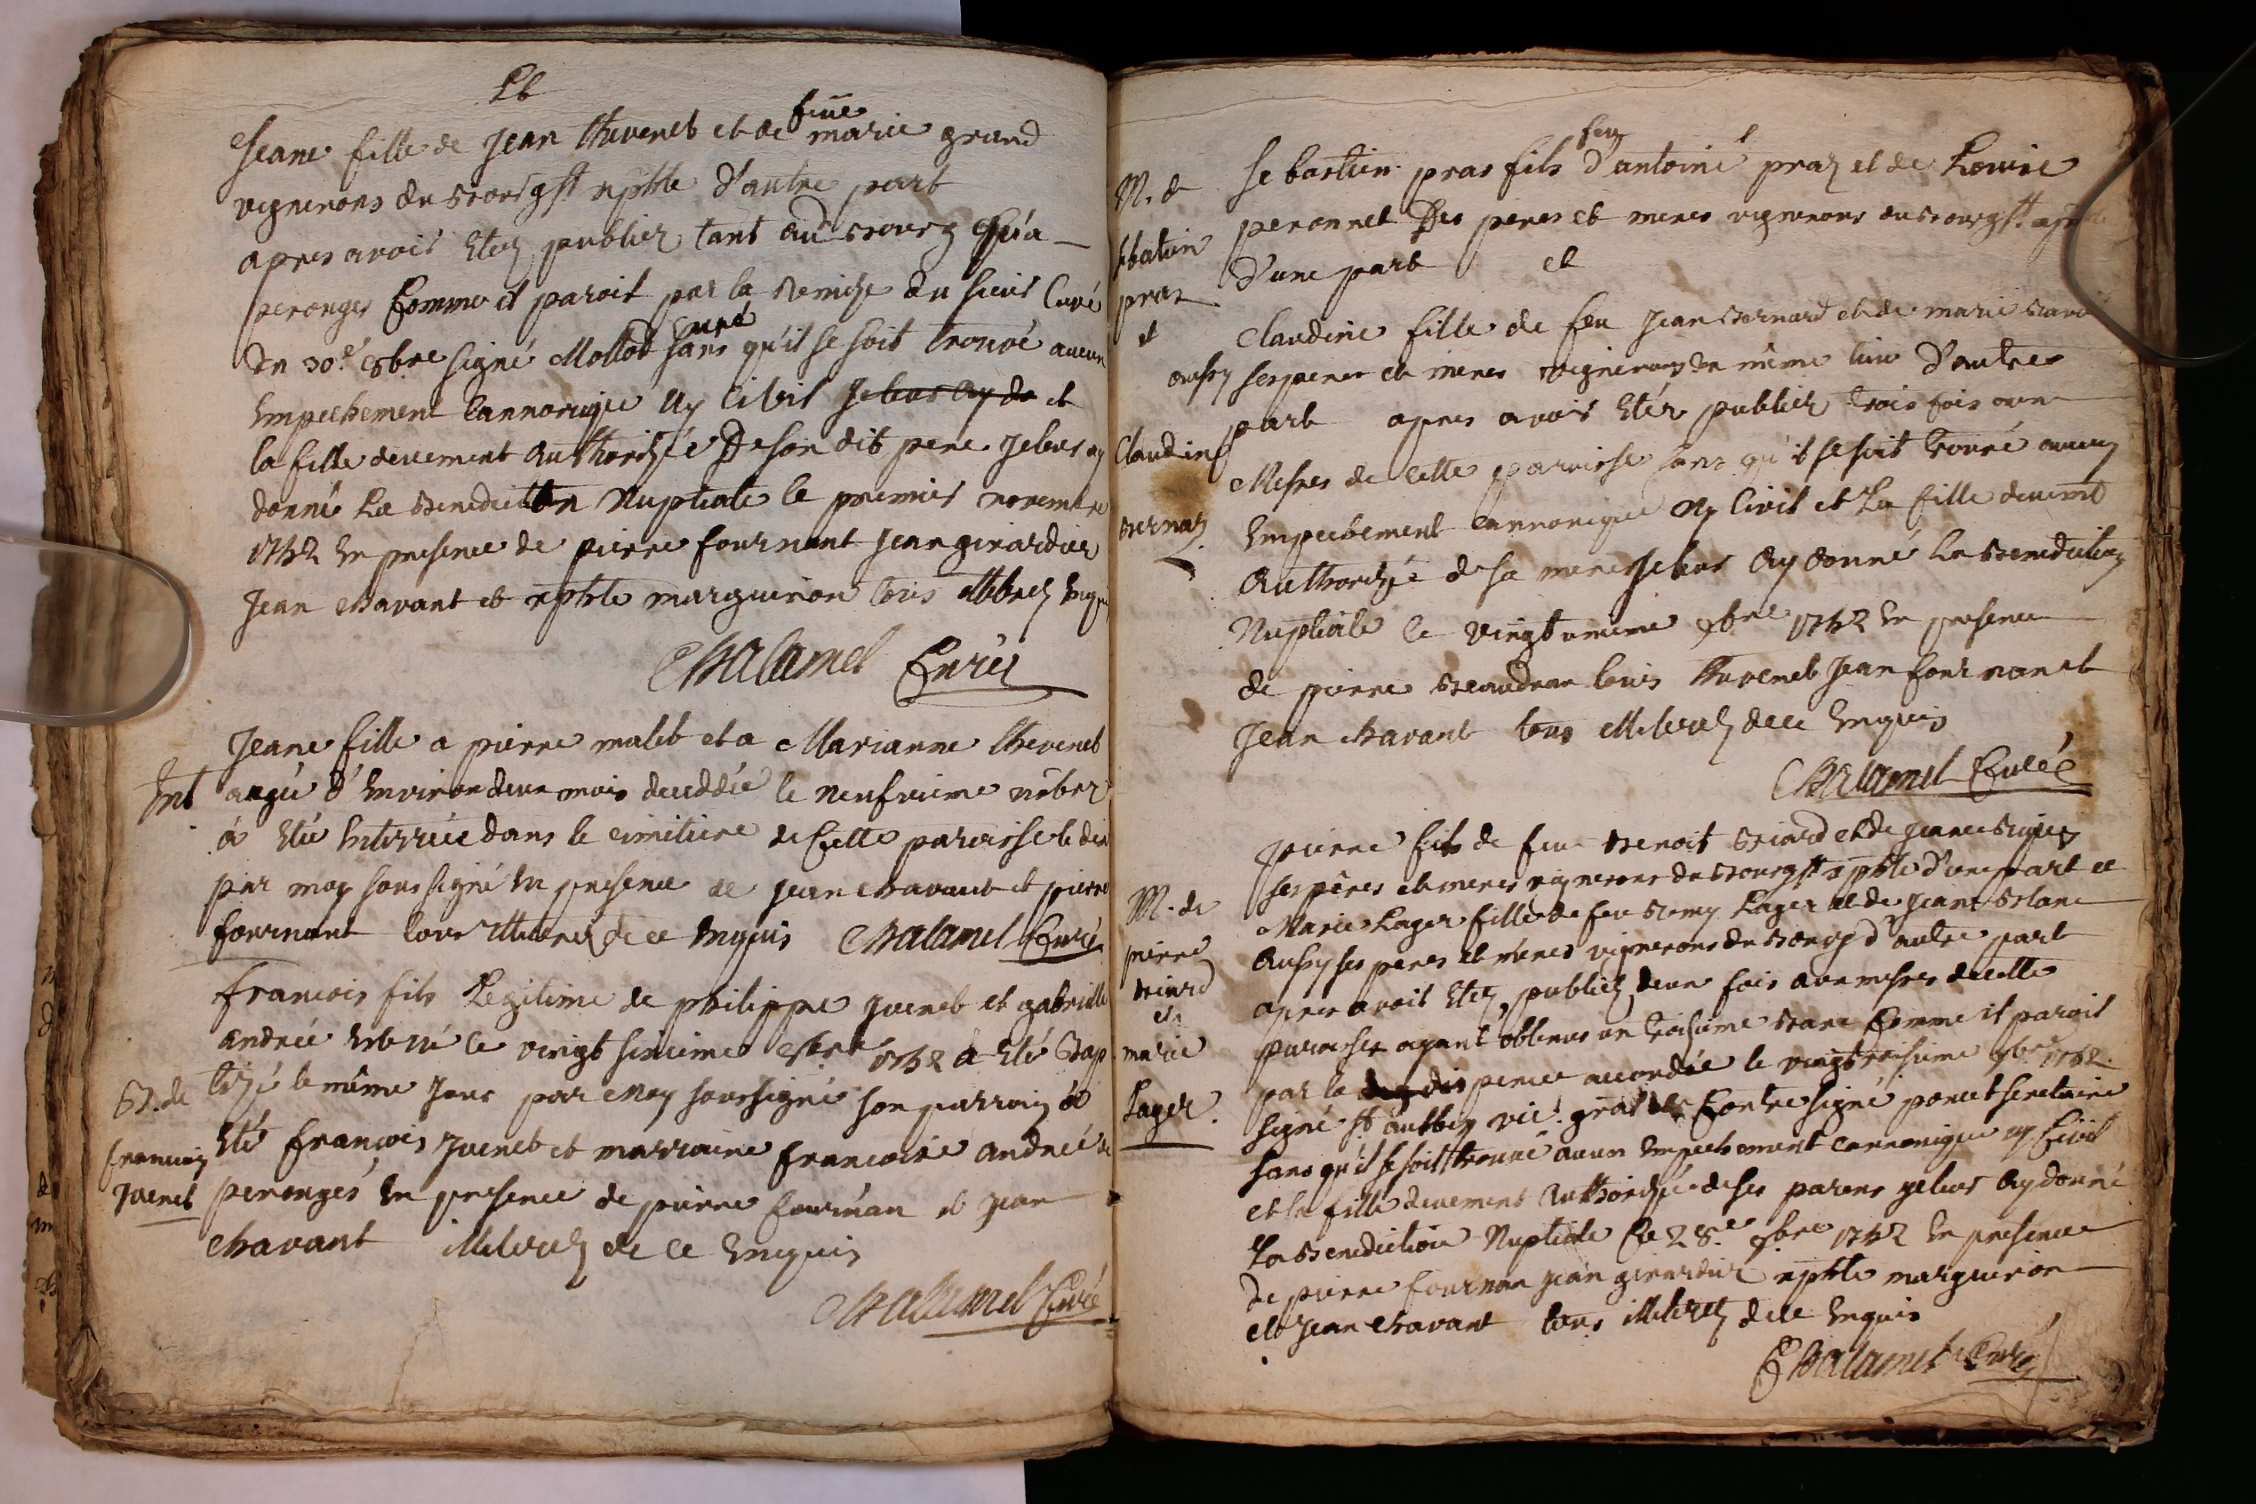 Et
Jeane fille de Jean thevenet et de feue marie grand
vignerons du bourg st xphle d'autre part
apres avoir etez publiez tant aud bourg qu'a
peronges comme il paroit par la remise du sieur curé
du 30e 8bre signé Mollot curé sans qu'il se soit trouvé aucun
empechement cannonique ny civil je leur ay do et
la fille deuement authorizée de son dit pere je leur ay
donné la benediction nuptiale le premier novembre
1752 en presence de pierre fournant Jean girardier
Jean chavant et xphle margueron tous illiterez enquis
Chalamel Curé
Ent
Jeane fille a pierre malet et a Marianne thevenet
augée d'environ deux mois decedée le neufvieme novbre
a été enterrée dans le cimitiere de cette paroisse le dix
par moy soussigné en presence de jean chavant et pierre
fournant tous illiterez de ce enquis Chalamel Curé
B. de
francois
Juenet
francois fils legitime de philippe juenet et gabrielle
andrée est né le vingt sixieme 9bre 1752 a été bap
tizé le même jour par moy soussigné son parrain a
été francois juenet et marraine francoise andrée de
peronges en presence de pierre fournan et jean
chavant illiterez de ce enquis
Chalamel Curé
M. de
sebatien
pras
et
Claudine
bernar
sebastien pras fils feu d'antoine praz et de Louise
peronnet ses peres et meres vignerons du bourg st xphle
d'une part et
Claudine fille de feu Jean bernard et de marie
aussy ses peres et meres vignerons du même lieu d'autre
part apres avoir etez publiez trois fois aux
Messes de cette paroisse sans qu'il se soit trouvé aucun
empechement cannonique ny civil et la fille deuemt
authorizée de sa mere je leur ay donné la benediction
nuptiale le vingt unieme 9bre 1752 en presence
de pierre beaudran louis thevenet Jean fournan et
Jean chavant tous illiterez de ce enquis
Chalamel Curé
M. de
pierre
briard
et
marie
Lager
pierre fils de feu benoit briard et de jeane
ses pères et meres vignerons du bourg st xphle d'une part et
Marie Lager fille de feu remy Lager et de jeane blanc
aussy ses peres et meres vignerons du bourg d'autre part
apres avoir etez publiez deux fois aux messes de cette
paroisse ayant obtenus un troisieme banc comme il paroit
par la dispence accordée le vingt troisieme 9bre 1752
signé st aubin vic. gral et contresigné poncet secretaire
sans qu'il se soit trouvé aucun empechement cannonique ny civil
et la fille deuement authorizée de ses parens je leur ay donné
la benediction nuptiale le 28e 9bre 1752 en presence
de pierre fournan jean girardier xphle margueron
et Jean chavant tous illiterez de ce enquis
Chalamel Curé